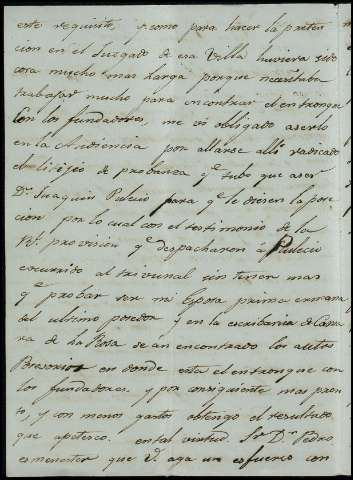 este requisito, y como para hacer la peticion
cion en el Juzgado de esa Villa huviera sido
cosa mucho mas larga porque necesitaba
trabajar mucho para encontrar el entronque
con los fundadores, me vi obligado aserlo
en la Audiencia por allarse alli radicado
el litigio de probanza q.e tubo que aser
D.n Joaquin Pulecio para q.e le diesen la pose
cion por lo cual con el testimonio de la
R.l provision q.e despacharon a Pulecio
escurrido al trivunal sin tener mas
q.e probar ser mi Esposa prima ermana
del ultimo posedor y en la escribania de Cama
ra de la Rosa se an encontrado los autos
en donde esta el entronque con
los fundadores y por consiguiente mas pron
to, y con menos gastos obtengo el resultado
que apetesco. en tal virtud S.or D.n Pedro,
es menester que V. aga un esfuerso con